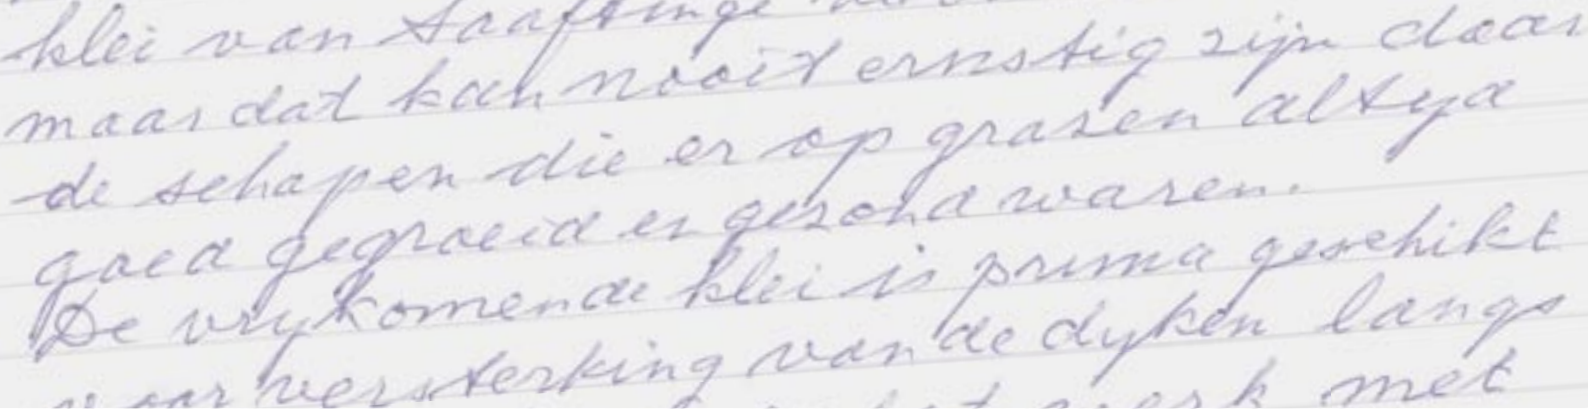 klei van Saaftinge
maar dat kan nooit ernstig zijn daar
de schapen die er op grazen altyd
goed gegroeid en gezond waren.
De vrykomende klei is prima geschikt
voor versterking van de dyken langs
werk met